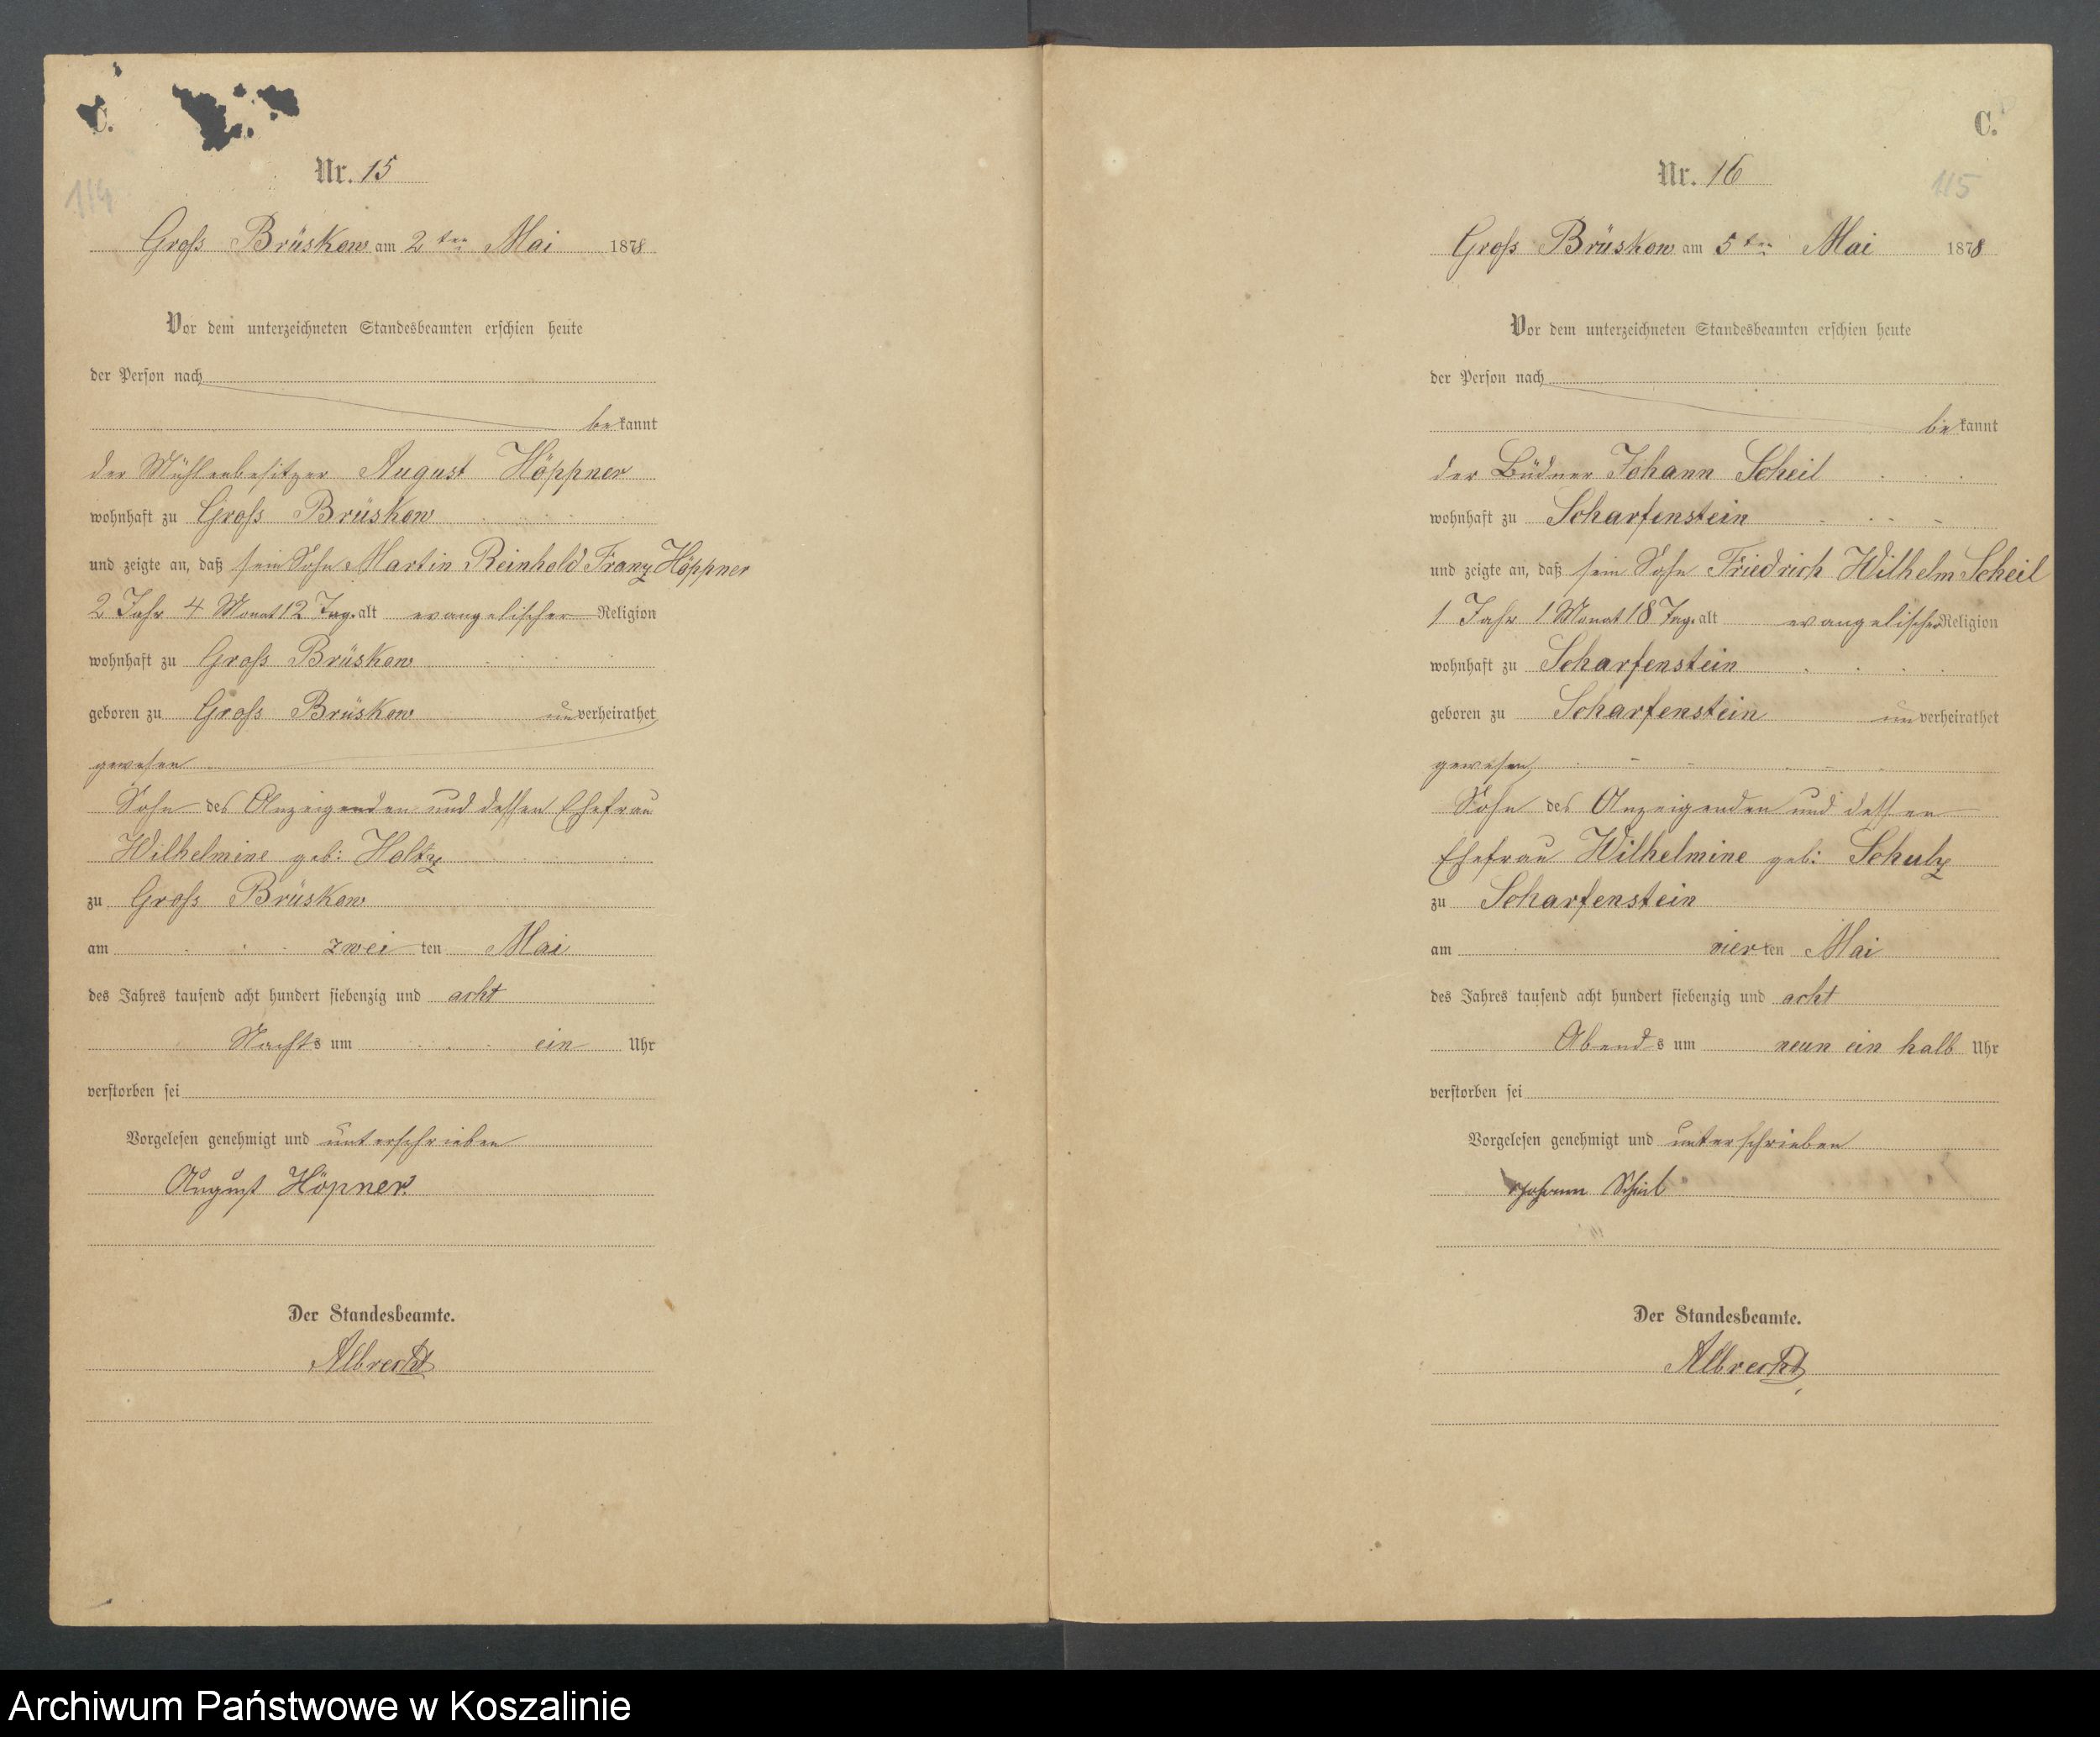 C.
Nr. 15
114
Groß Brüskow am 2ten Mai 1878
Vor dem unterzeichneten Standesbeamten erschien heute
der Person nach
bekannt
der Mühlenbesitzer August Höppner
wohnhaft zu Groß Brüskow
und zeigte an, daß sein Sohn Martin Reinhold Franz Höppner
2 Jahr 4 Monat 12 Tage alt evangelischer Religion
wohnhaft zu Groß Brüskow
geboren zu Groß Brüskow unverheirathet
gewesen
Sohn des Anzeigenden und dessen Ehefrau
Wilhelmine geb: Holtz
zu Groß Brüskow
am zweiten Mai
des Jahres tausend acht hundert siebenzig und acht
Nachts um ein Uhr
verstorben sei
Vorgelesen genehmigt und unterschrieben
August Höpner
Der Standesbeamte.
Albrecht
C.
Nr. 16
115
Groß Brüskow am 5ten Mai 1878
Vor dem unterzeichneten Standesbeamten erschien heute
der Person nach
bekannt
der Büdner Johann Scheil
wohnhaft zu Scharfenstein
und zeigte an, daß sein Sohn Friedrich Wilhelm Scheil
1 Jahr 1 Monat 18 Tage alt evangelischer Religion
wohnhaft zu Scharfenstein
geboren zu Scharfenstein unverheirathet
gewesen,
Sohn des Anzeigenden und dessen
Ehefrau Wilhelmine geb: Schulz
zu Scharfenstein
am vierten Mai
des Jahres tausend acht hundert siebenzig und acht
Abends um neun ein halb Uhr
verstorben sei
Vorgelesen genehmigt und unterschrieben
Johann Scheil
Der Standesbeamte.
Albrecht
Archiwum Państwowe w Koszalinie